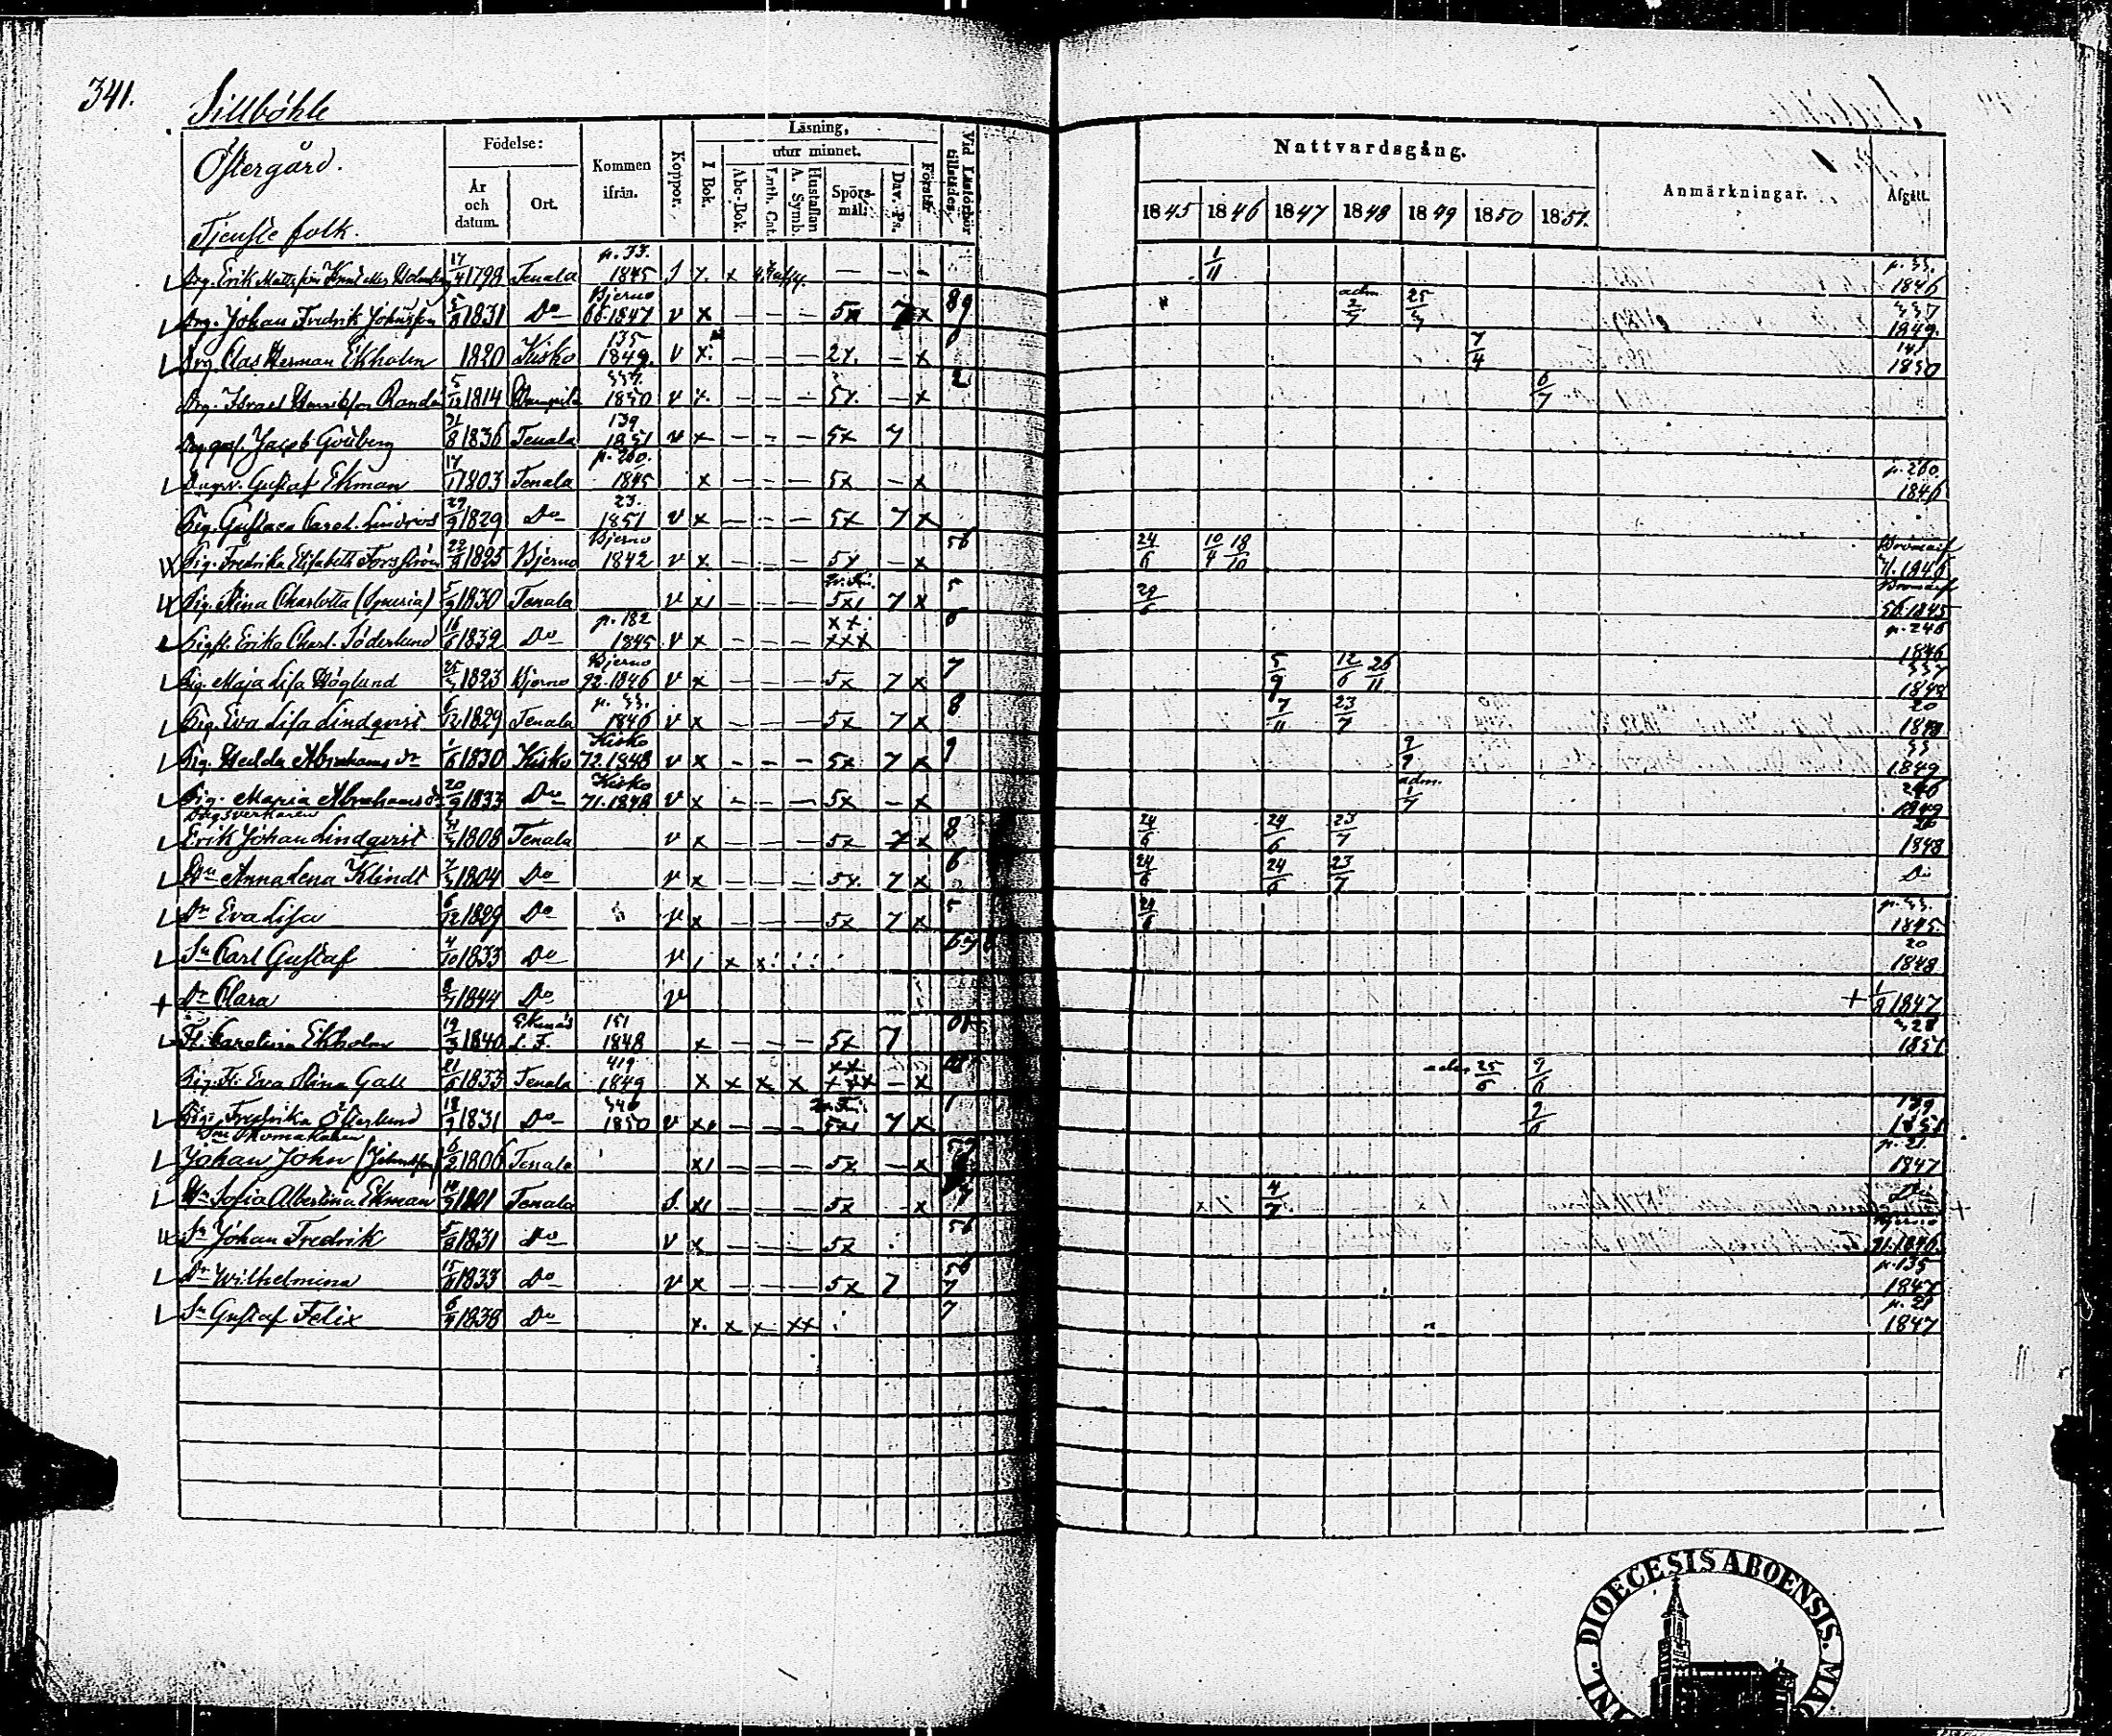 341.
Sillböhle
Östergård.
Tjenste folk.
Födelse:
År och datum.
Ort.
Kommen ifrån.
Koppor.
Läsning,
I Bok.
utur minnet.
Abc-Bok.
Luth. Cat.
Hustaflan A. Symb.
Spörsmål:
Dav. Ps.
Förstår
Vid Läsförhör tillstädes.
Nattvardsgång.
1845 1846 1847 1848 1849 1850 1851.
Anmärkningar.
Afgått.
Drg. Erik Mattsson 17/4 1798 Tenala p. 33. 1845 1/11 1846
Drg. Johan Fredrik Johnsson 5/8 1831 Do Bjerno 66. 1847 v x — — — 5x 7 x 89 adm. 2/7 25/3 337 1849.
Drg. Clas Herman Ekholm 1820 Kisko 135 1849. v x — — — 2x. — x 7/4 141 1850
Drg. Israel 5/12 1814 337. 1850 v x — — — 5x. — x 2 6/7
Jacob 31/8 1836 Tenala 139 1851 v x — — — 5x 7
Gustaf Ekman 17/1 1803 Tenala p. 260. 1845 x — — — 5x — x p. 260. 1846
Pig. Gustava Carol. 29/9 1829 Do 23. 1851 v x — — — 5x 7 x
Pig. Fredrika Elisabeth Forsström 22/8 1825 Bjerno Bjerno 1842 v x — — — 5x — x 56 24/6 10/4 18/10 71. 1846
Pig. Stina Charlotta (Spuria) 5/9 1830 Tenala v x — — — 5x 7 x 5 29/6 56. 1845
Erika Charl. Söderlund 16/6 1832 Do p. 182 1845 v x — — — xxx 6 p. 246 1846
Pig. Maja Lisa Höglund 25/3 1823 Bjerno Bjerno 92. 1846 v x — — — 5x 7 x 7 5/9 12/6 26/11 337 1848
Pig. Eva Lisa Lindqvist 6/12 1829 Tenala p. 33. 1846 v x — — — 5x 7 x 8 7/11 23/7 20 1848
Pig. Hedda Abrahams dr 1/6 1830 Kisko Kisko 72. 1848 v x — — — 5x 7 x 9 9/9 33 1849
Pig. Maria Abrahams dr 20/9 1833 Do Kisko 71. 1848 v x — — — 5x — x adm. 1/7 246 1849
Dagsverkaren
Erik Johan Lindqvist 1808 Tenala v x — — — 5x 7 x 8 24/6 24/6 23/7 20 1848
Hu Anna Lena Klindt 7/3 1804 Do v x — — — 5x. 7 x 6 24/6 24/6 23/7 Do
Dr Eva Lisa 6/12 1829 Do v x — — — 5x 7 x 5 24/6 p. 33. 1845.
Sn Carl Gustaf 4/10 1833 Do v x x 20 1848
Dr Clara 1844 Do v + 1/8 1847
Fl. Carolina Ekholm 19/3 1840 Ekenäs L. F. 151 1848 x — — — 5x 7 328 1851
Pig. Fl. Eva Stina Gall 21/6 1833 Tenala 419 1849 x x x x xxx — x 25/6 9/6
Pig. Fredrika Österlund 18/9 1831 Do 346 1850 v x — — — 5x 7 x 1 9/6 139 1851
Skomakaren
Johan John (Johansson) 6/2 1806 Tenala x — — — 5x — x p. 21. 1847
Hu Sofia Albertina Ekman 1801 Tenala x — — — 5x — x 7 4/7 Do
Sn Johan Fredrik 5/8 1831 Do v x — — — 5x 56 Bjerno 91. 1846.
Dr Wilhelmina 15/11 1833 Do v x — — — 5x 7 56 7 p. 135 1847
Sn Gustaf Felix 1838 Do x. x x xx 7 p. 21 1847
INL. DIOECESIS ABOENSIS. MAG